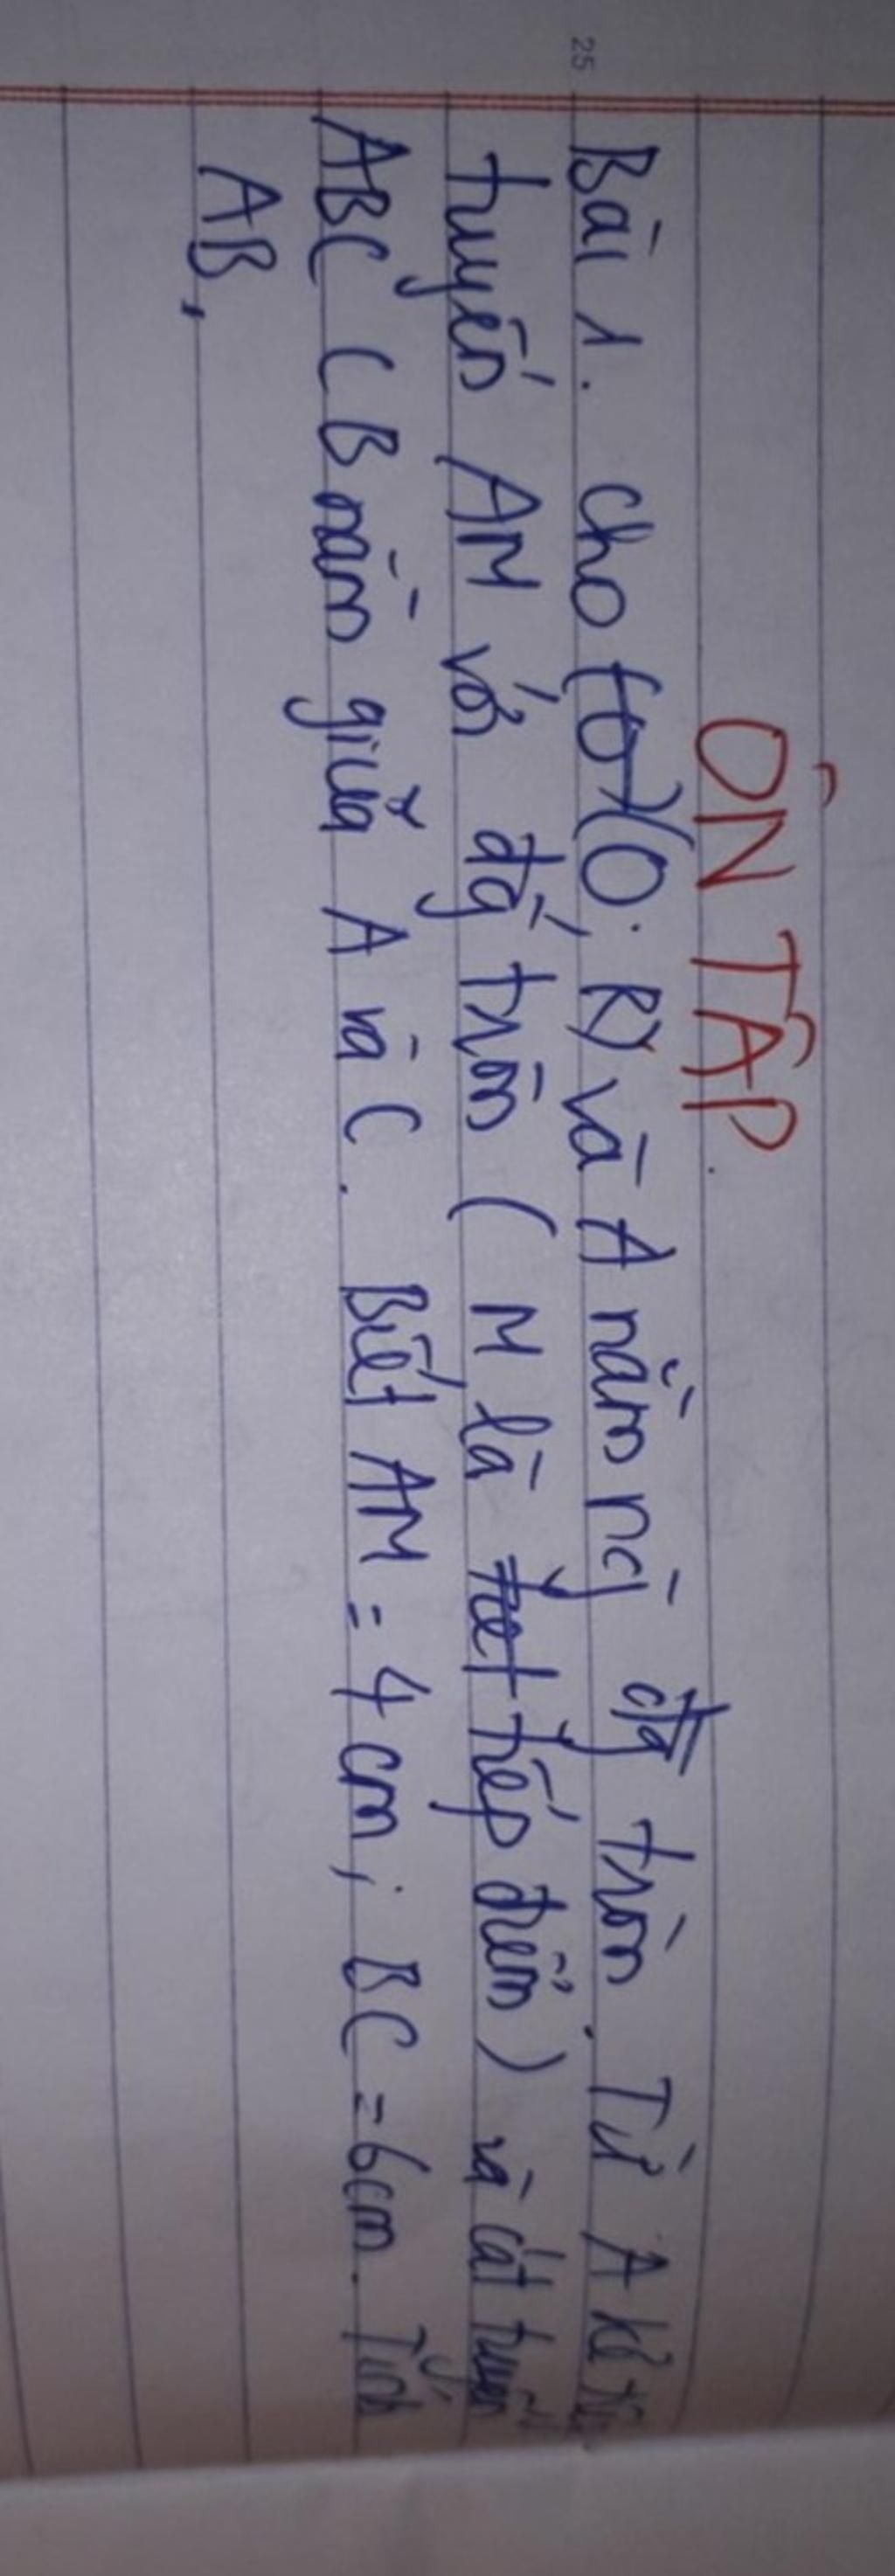 25
ÔN TẬP.
Bài 1. cho (O; R) và A nằm ng̀ đg tròn. Từ A kẻ
tuyến AM với đg tròn (M là tiếp điểm) và cát tuyến
ABC (B nằm giữa A và C. Biết AM = 4 cm; BC = 6cm. Tính
AB,